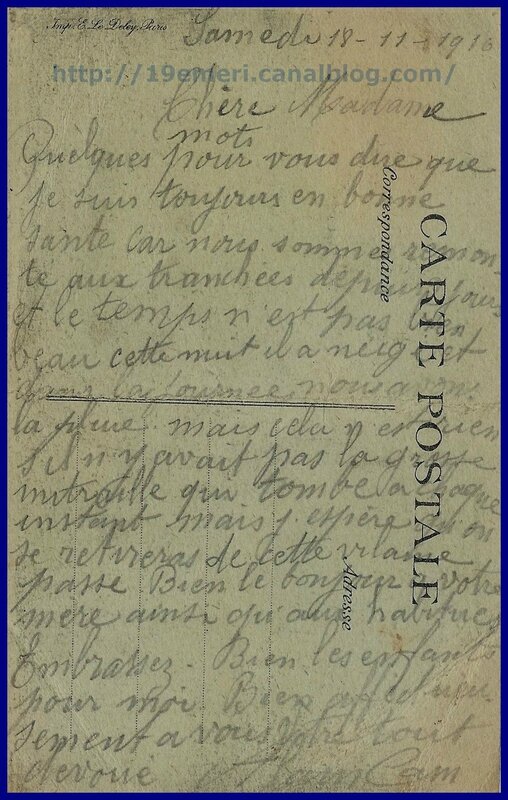 Imp. E. Le Deley, Paris
Samedi 18-11-1916
http://19emeri.canalblog.com/
Chère Madame
mots
Quelques pour vous dire que
je suis toujours en bonne
sante car nous sommes remon-
te aux tranchées depuis
et le temps n'est pas bien
beau cette nuit il a neige et
dans la journee nous avons
la pluie mais cela n'est rien
s'il n'y avait pas la grosse
mitraille qui tombe a chaque
instant mais j'espère qu'on
se retireras de cette vilaine
passe Bien le bonjour a votre
mere ainsi qu'aux
Embrassez - Bien les enfants
pour moi Bien affectueu-
sement a vous Votre tout
devoué
Correspondance
CARTE POSTALE
Adresse